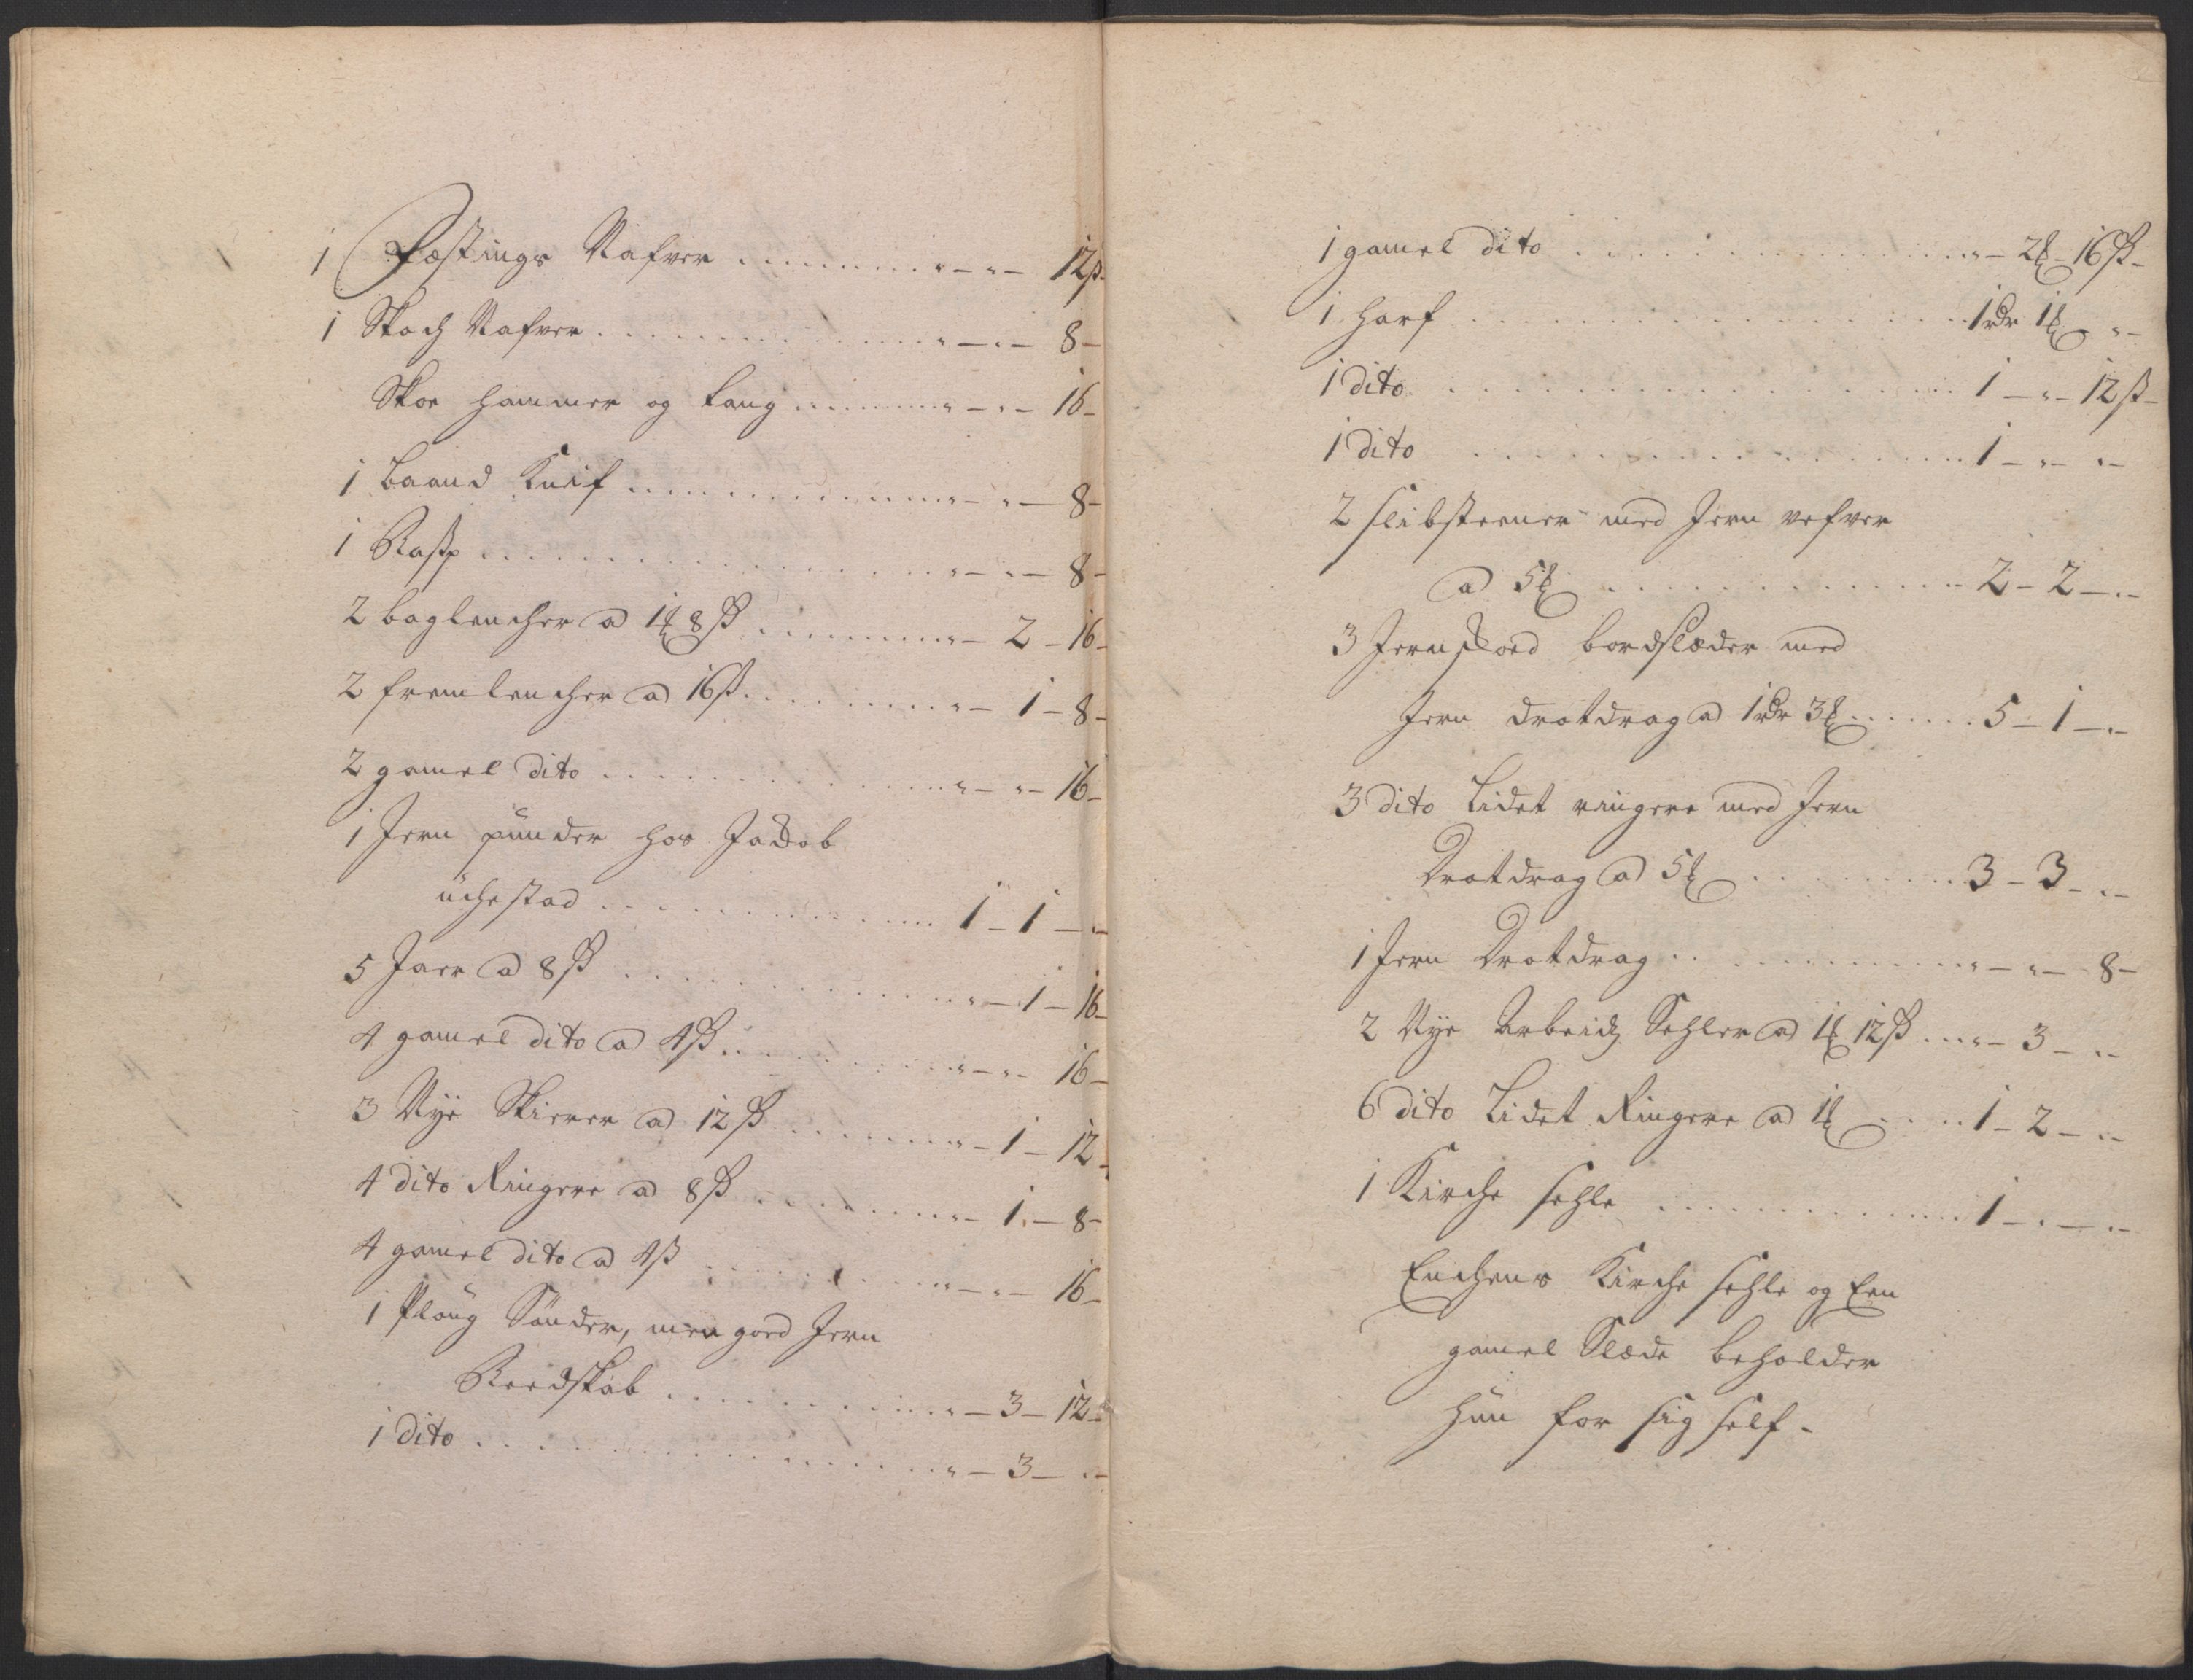 1 Fæstings Nafver ........ " - " - 12ß
1 Skach Nafver ........ " - " - 8 -
Skoe hammer og tang ........ " - " - 16 -
1 baand Knif ........ " - " - 8 -
1 Rasp ........ " - " - 8 -
2 baglencher a 1 8ß ........ " - 2 - 16 -
2 fremlencher a 16ß ........ " - 1 - 8 -
2 gamel dito ........ " - " - 16 -
1 Jern punder hos Jakob
uchestad ........ 1 - 1 - " -
5 Jaer a 8ß ........ " - 1 - 16 -
4 gamel dito a 4ß ........ " - " - 16 -
3 Nye Skierer a 12ß ........ " - 1 - 12 -
4 dito Ringere a 8ß ........ " - 1 - 8 -
4 gamel dito a 4ß ........ " - " - 16 -
1 Ploug Sønder, men goed Jern
Reedskab ........ " - 3 - 12 -
1 dito ........ " - 3 - " -
1 gamel dito ........ " - 2 - 16ß -
1 harf ........ 1rdr 1 " -
1 dito ........ 1 - " - 12ß -
1 dito ........ 1 - " - " -
2 slibsteener med Jern vefver
a 5 ........ 2 - 2 - " -
3 Jernskoed bordslæder med
Jern dratdrag a 1rdr 3 ........ 5 - 1 - " -
3 dito Lidet ringere med Jern
Dratdrag a 5 ........ 3 - 3 - " -
1 Jern Dratdrag ........ " - " - 8 -
2 Nye Arbeids Sehler a 1 12ß .... " - 3 - " -
6 dito Lidet Ringere a 1 ........ 1 - 2 - " -
1 Kirche sehle ........ 1 - " - " -
Enchens Kirche sehle og Een
gamel Slæde beholder
hun for sig self -